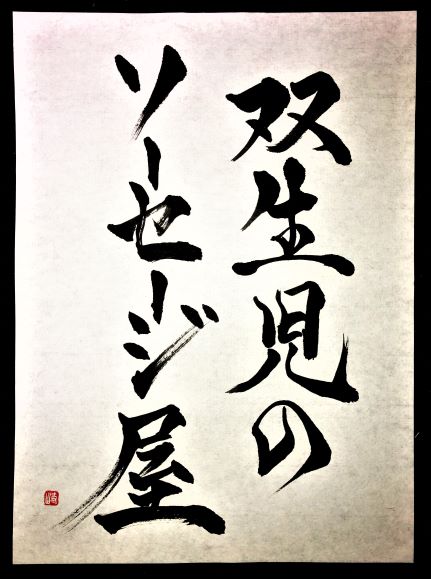 双生児の
ソーセージ屋